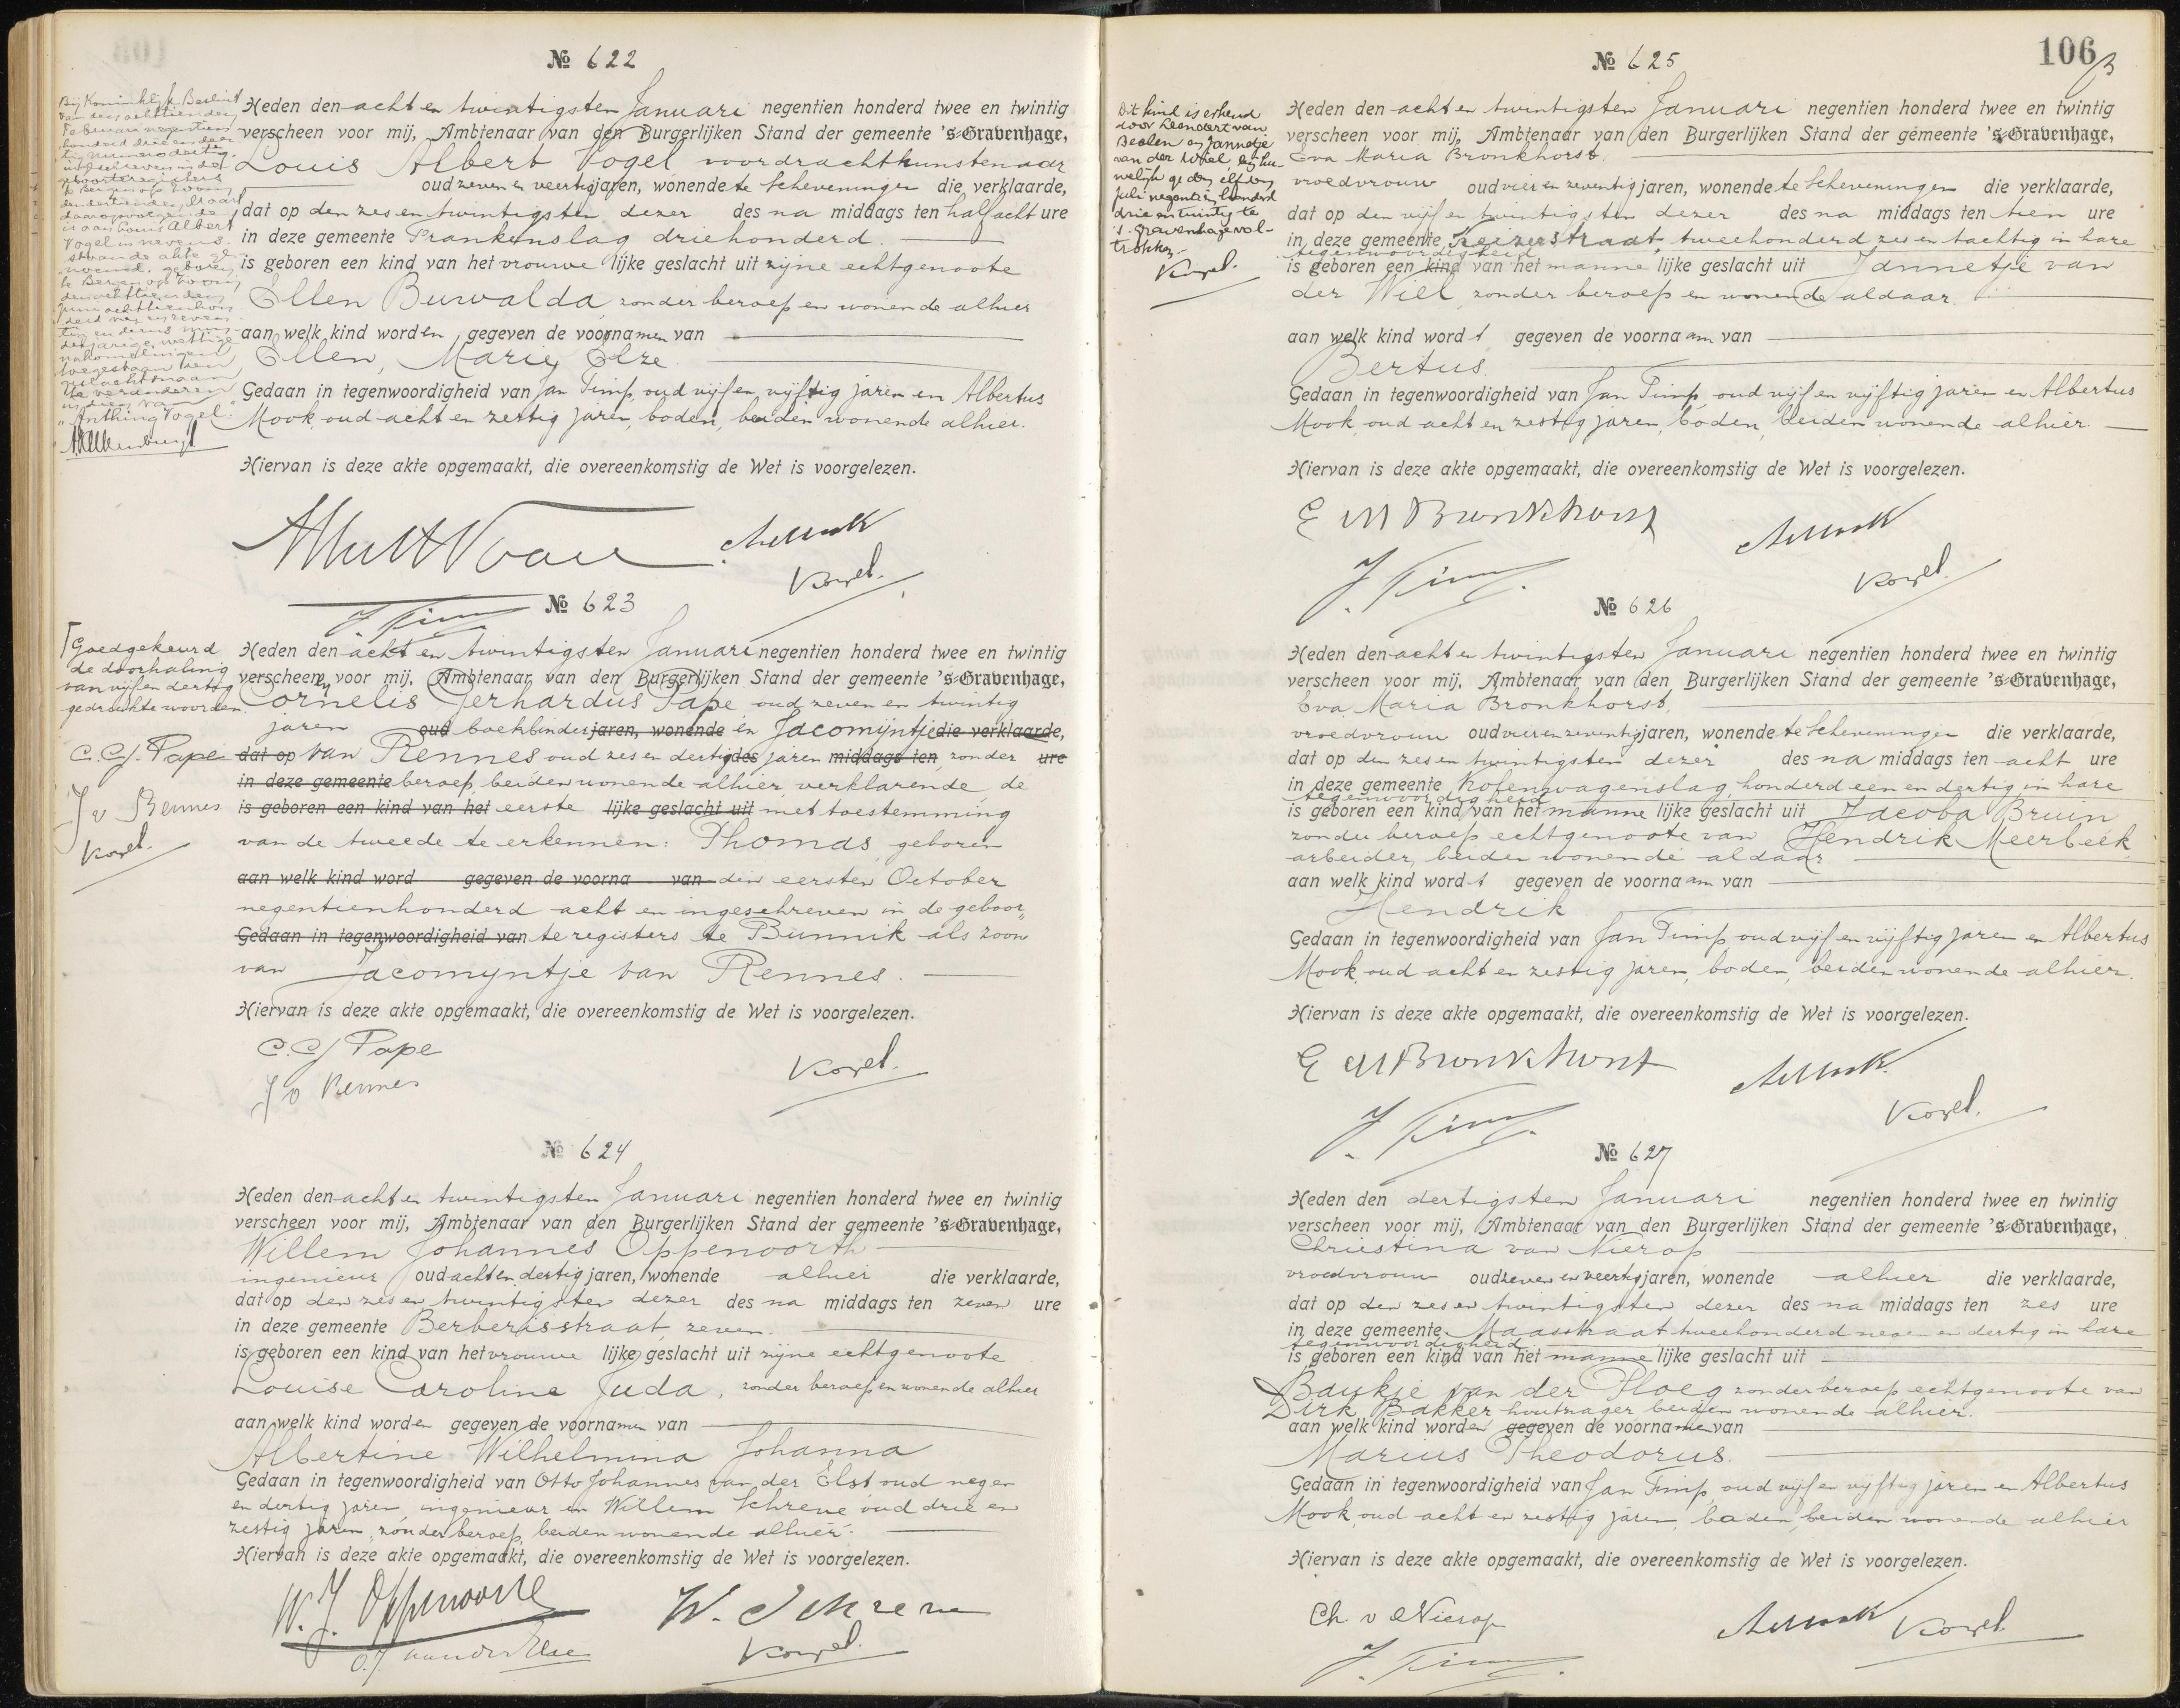 № 622
Bij Koninklijk Besluit
van den achttienden
Februari negentien
honderd drie en der
tig nummer dertig,
ingeschreven in de
geboorteregisters
te Bergen op Zoom
den dertienden Maart
daaropvolgende
is aan Louis Albert
Vogel in nevens-
staande akte ge-
noemd, geboren
te Bergen op Zoom
den achttienden
toegestaan hun
geslachtsnaam
te veranderen
in dien van
"Anthing Vogel."
Heden den acht en twintigsten Januari negentien honderd twee en twintig
verscheen voor mij, Ambtenaar van den Burgerlijken Stand der gemeente 's-Gravenhage,
Louis Albert Vogel voordrachtkunstenaar
oud zeven en veertig jaren, wonende te Scheveningen die verklaarde,
dat op den zes en twintigsten dezer des na middags ten half acht ure
in deze gemeente Frankenslag driehonderd.
is geboren een kind van het vrouwe lijke geslacht uit zijne echtgenoote
Ellen Buwalda, zonder beroep en wonende alhier
aan welk kind worden gegeven de voornamen van
Ellen, Marie, Elze.
Gedaan in tegenwoordigheid van Jan Timp, oud vijf en vijftig jaren en Albertus
Mook, oud acht en zestig jaren, boden, beiden wonende alhier.
Hiervan is deze akte opgemaakt, die overeenkomstig de Wet is voorgelezen.
Albert Vogel AMook
Korpel.
J. Timp
№ 623
Goedgekeurd
de doorhaling
van vijf en dertig
gedrukte woorden.
C.G.J. Pape
J v Rennes
Korpel.
Heden den acht en twintigsten Januari negentien honderd twee en twintig
verscheenen voor mij, Ambtenaar van den Burgerlijken Stand der gemeente 's-Gravenhage,
Cornelis Gerhardus Pape oud zeven en twintig
jaren oud boekbinder jaren, wonende en Jacomijntje die verklaarde,
dat op van Rennes oud zes en dertig des jaren middags ten zonder ure
in deze gemeente beroep, beiden wonende alhier, verklarende, de
is geboren een kind van het eerste lijke geslacht uit met toestemming
van de tweede te erkennen: Thomas, geboren
aan welk kind word gegeven de voorna van den eersten October
negentienhonderd acht en ingeschreven in de geboor„
Gedaan in tegenwoordigheid van te registers te Bunnik als zoon
van Jacomyntje van Rennes.
Hiervan is deze akte opgemaakt, die overeenkomstig de Wet is voorgelezen.
C.G.J Pape
J v Rennes
Korpel.
№ 624
Heden den acht en twintigsten Januari negentien honderd twee en twintig
verscheen voor mij, Ambtenaar van den Burgerlijken Stand der gemeente 's-Gravenhage,
Willem Johannes Oppenoorth
ingenieur oud acht en dertig jaren, wonende alhier die verklaarde,
dat op den zes en twintigsten dezer des na middags ten zeven ure
in deze gemeente Berberisstraat, zeven.
is geboren een kind van het vrouwe lijke geslacht uit zijne echtgenoote
Louise Caroline Juda, zonder beroep en wonende alhier
aan welk kind worden gegeven de voornamen van
Albertine Wilhelmina Johanna
Gedaan in tegenwoordigheid van Otto Johannes van der Elst oud negen
en dertig jaren, ingenieur en Willem Schreve oud drie en
zestig jaren, zonder beroep, beiden wonende alhier.
Hiervan is deze akte opgemaakt, die overeenkomstig de Wet is voorgelezen.
W.J. Oppenoorth W. Schreve
O.J. van der Elst Korpel.
106
№ 625
Dit kind is erkend
door Leendert van
Beelen en Jannetje
van der Wiel, bij hu-
welijk op den elfden
Juli negentien honderd
drie en twintig te
's-Gravenhage vol-
trokken.
Korpel.
Heden den acht en twintigsten Januari negentien honderd twee en twintig
verscheen voor mij, Ambtenaar van den Burgerlijken Stand der gemeente 's-Gravenhage,
Eva Maria Bronkhorst.
vroedvrouw oud vier en zeventig jaren, wonende te Scheveningen die verklaarde,
dat op den vijf en twintigsten dezer des na middags ten tien ure
in deze gemeente, Keizerstraat, tweehonderd zes en tachtig in hare
tegenwoordigheid
is geboren een kind van het manne lijke geslacht uit Jannetje van
der Wiel, zonder beroep en wonende aldaar.
aan welk kind wordt gegeven de voornaam van
Bertus.
Gedaan in tegenwoordigheid van Jan Timp, oud vijf en vijftig jaren en Albertus
Mook, oud acht en zestig jaren, boden, beiden wonende alhier.
Hiervan is deze akte opgemaakt, die overeenkomstig de Wet is voorgelezen.
E M Bronkhorst AMook
J. Timp Korpel.
№ 626
Heden den acht en twintigsten Januari negentien honderd twee en twintig
verscheen voor mij, Ambtenaar van den Burgerlijken Stand der gemeente 's-Gravenhage,
Eva Maria Bronkhorst,
vroedvrouw oud vier en zeventig jaren, wonende te Scheveningen die verklaarde,
dat op den zes en twintigsten dezer des na middags ten acht ure
in deze gemeente Kolenwagenslag, honderd een en dertig in hare
tegenwoordigheid
is geboren een kind van het manne lijke geslacht uit Jacoba Bruin
zonder beroep echtgenoote van Hendrik Meerbeek
arbeider, beiden wonende aldaar
aan welk kind wordt gegeven de voornaam van
Hendrik
Gedaan in tegenwoordigheid van Jan Timp, oud vijf en vijftig jaren en Albertus
Mook, oud acht en zestig jaren, boden, beiden wonende alhier.
Hiervan is deze akte opgemaakt, die overeenkomstig de Wet is voorgelezen.
E M Bronkhorst AMook
J. Timp Korpel.
№ 627
Heden den dertigsten Januari negentien honderd twee en twintig
verscheen voor mij, Ambtenaar van den Burgerlijken Stand der gemeente 's-Gravenhage,
Christina van Nierop
vroedvrouw oud zeven en veertig jaren, wonende alhier die verklaarde,
dat op den zes en twintigsten dezer des na middags ten zes ure
in deze gemeente, Maasstraat tweehonderd negen en dertig in hare
tegenwoordigheid
is geboren een kind van het manne lijke geslacht uit
Baukje van der Ploeg zonder beroep echtgenoote van
Dirk Bakker houtzager beiden wonende alhier.
aan welk kind worden gegeven de voornamen van
Marius Theodorus.
Gedaan in tegenwoordigheid van Jan Timp, oud vijf en vijftig jaren en Albertus
Mook, oud acht en zestig jaren, boden, beiden wonende alhier
Hiervan is deze akte opgemaakt, die overeenkomstig de Wet is voorgelezen.
Ch. v Nierop AMook Korpel.
J. Timp